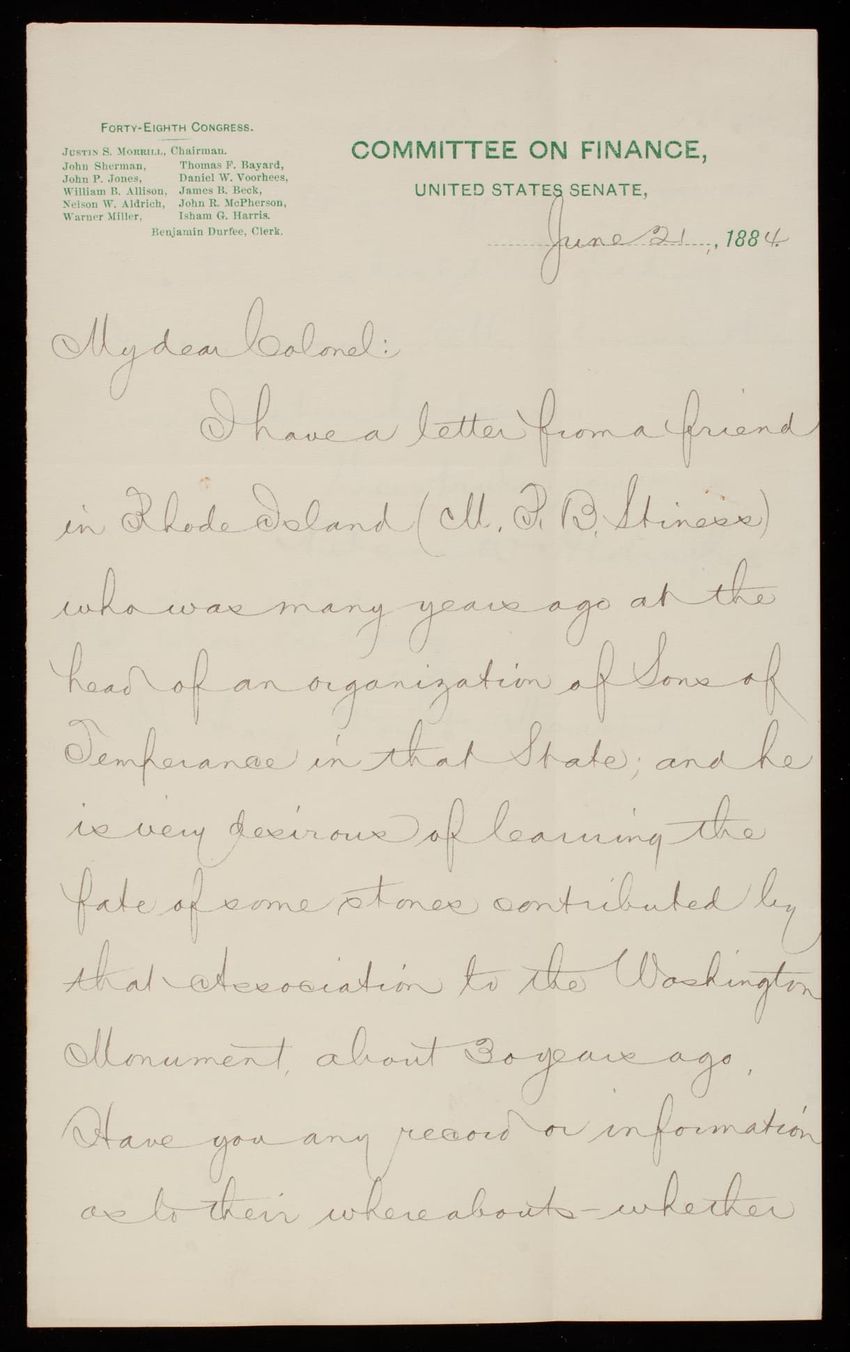 FORTY-EIGHTH CONGRESS.
JUSTIN S. MORRILL, Chairman.
John Sherman, Thomas F. Bayard,
John P. Jones, Daniel W. Voorhees,
William B. Allison, James B. Beck,
Nelson W. Aldrich, John R. McPherson,
Warner Miller, Isham G. Harris.
Benjamin Durfee, Clerk.
COMMITTEE ON FINANCE,
UNITED STATES SENATE,
June 21, 1884.
My dear Colonel:
I have a letter from a friend
in Rhode Island (M. P. B. Stiness)
who was many years ago at the
head of an organization of Sons of
Temperance in that State; and he
is very desirous of learning the
fate of some stones contributed by
that Association to the Washington
Monument, about 30 years ago.
Have you any record or information
as to their whereabouts - whether